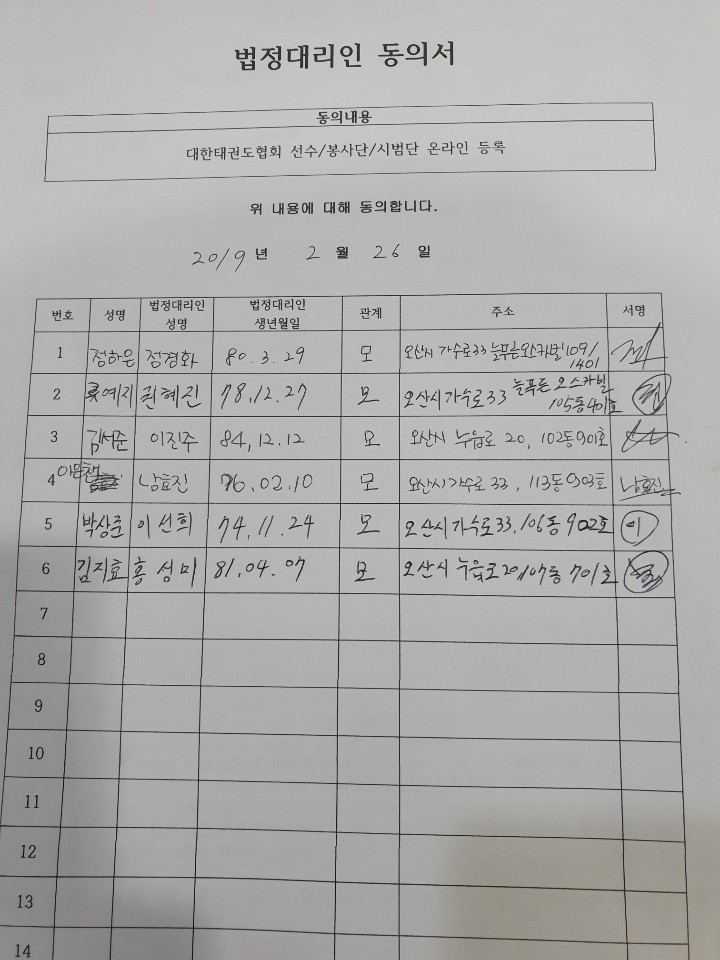 법정대리인 동의서
동의내용
대한태권도협회 선수/봉사단/시범단 온라인 등록
위 내용에 대해 동의합니다.
2019 년 2 월 26 일
번호 성명 법정대리인 성명 법정대리인 생년월일 관계 주소 서명
1 정하은 정경화 80.3.29 모 오산시 가수로33 늘푸른오스카빌 109/1401
2 예지 권혜진 78.12.27 모 오산시 가수로33 늘푸른 오스카빌 105동401호
3 김서준 이진주 84.12.12 모 오산시 누읍로 20, 102동901호
4 남효진 76.02.10 모 오산시 가수로 33, 113동903호 남효진
5 박상준 이선희 74.11.24 모 오산시 가수로33, 106동 902호 이
6 김지효 홍성미 81.04.07 모 오산시 누읍로20, 107동 701호
7
8
9
10
11
12
13
14